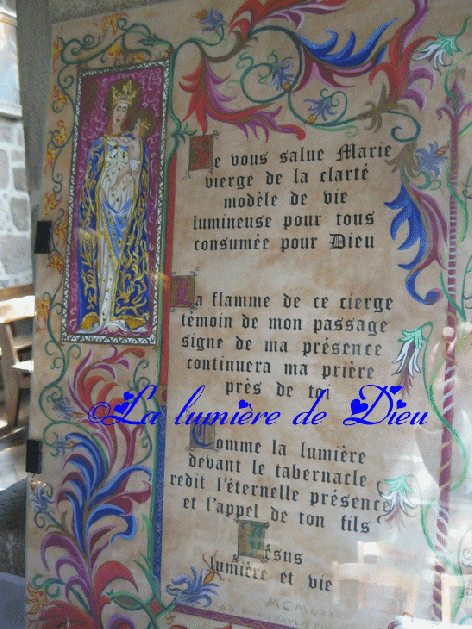 Je vous salue Marie
vierge de la clarté
modèle de vie
lumineuse pour tous
consumée pour Dieu
La flamme de ce cierge
témoin de mon passage
signe de ma présence
continuera ma prière
près de to
©La lumière de Dieu
Comme la lumière
devant le tabernacle
redit l'éternelle présence
et l'appel de ton fils
Jésus
lumière et vie